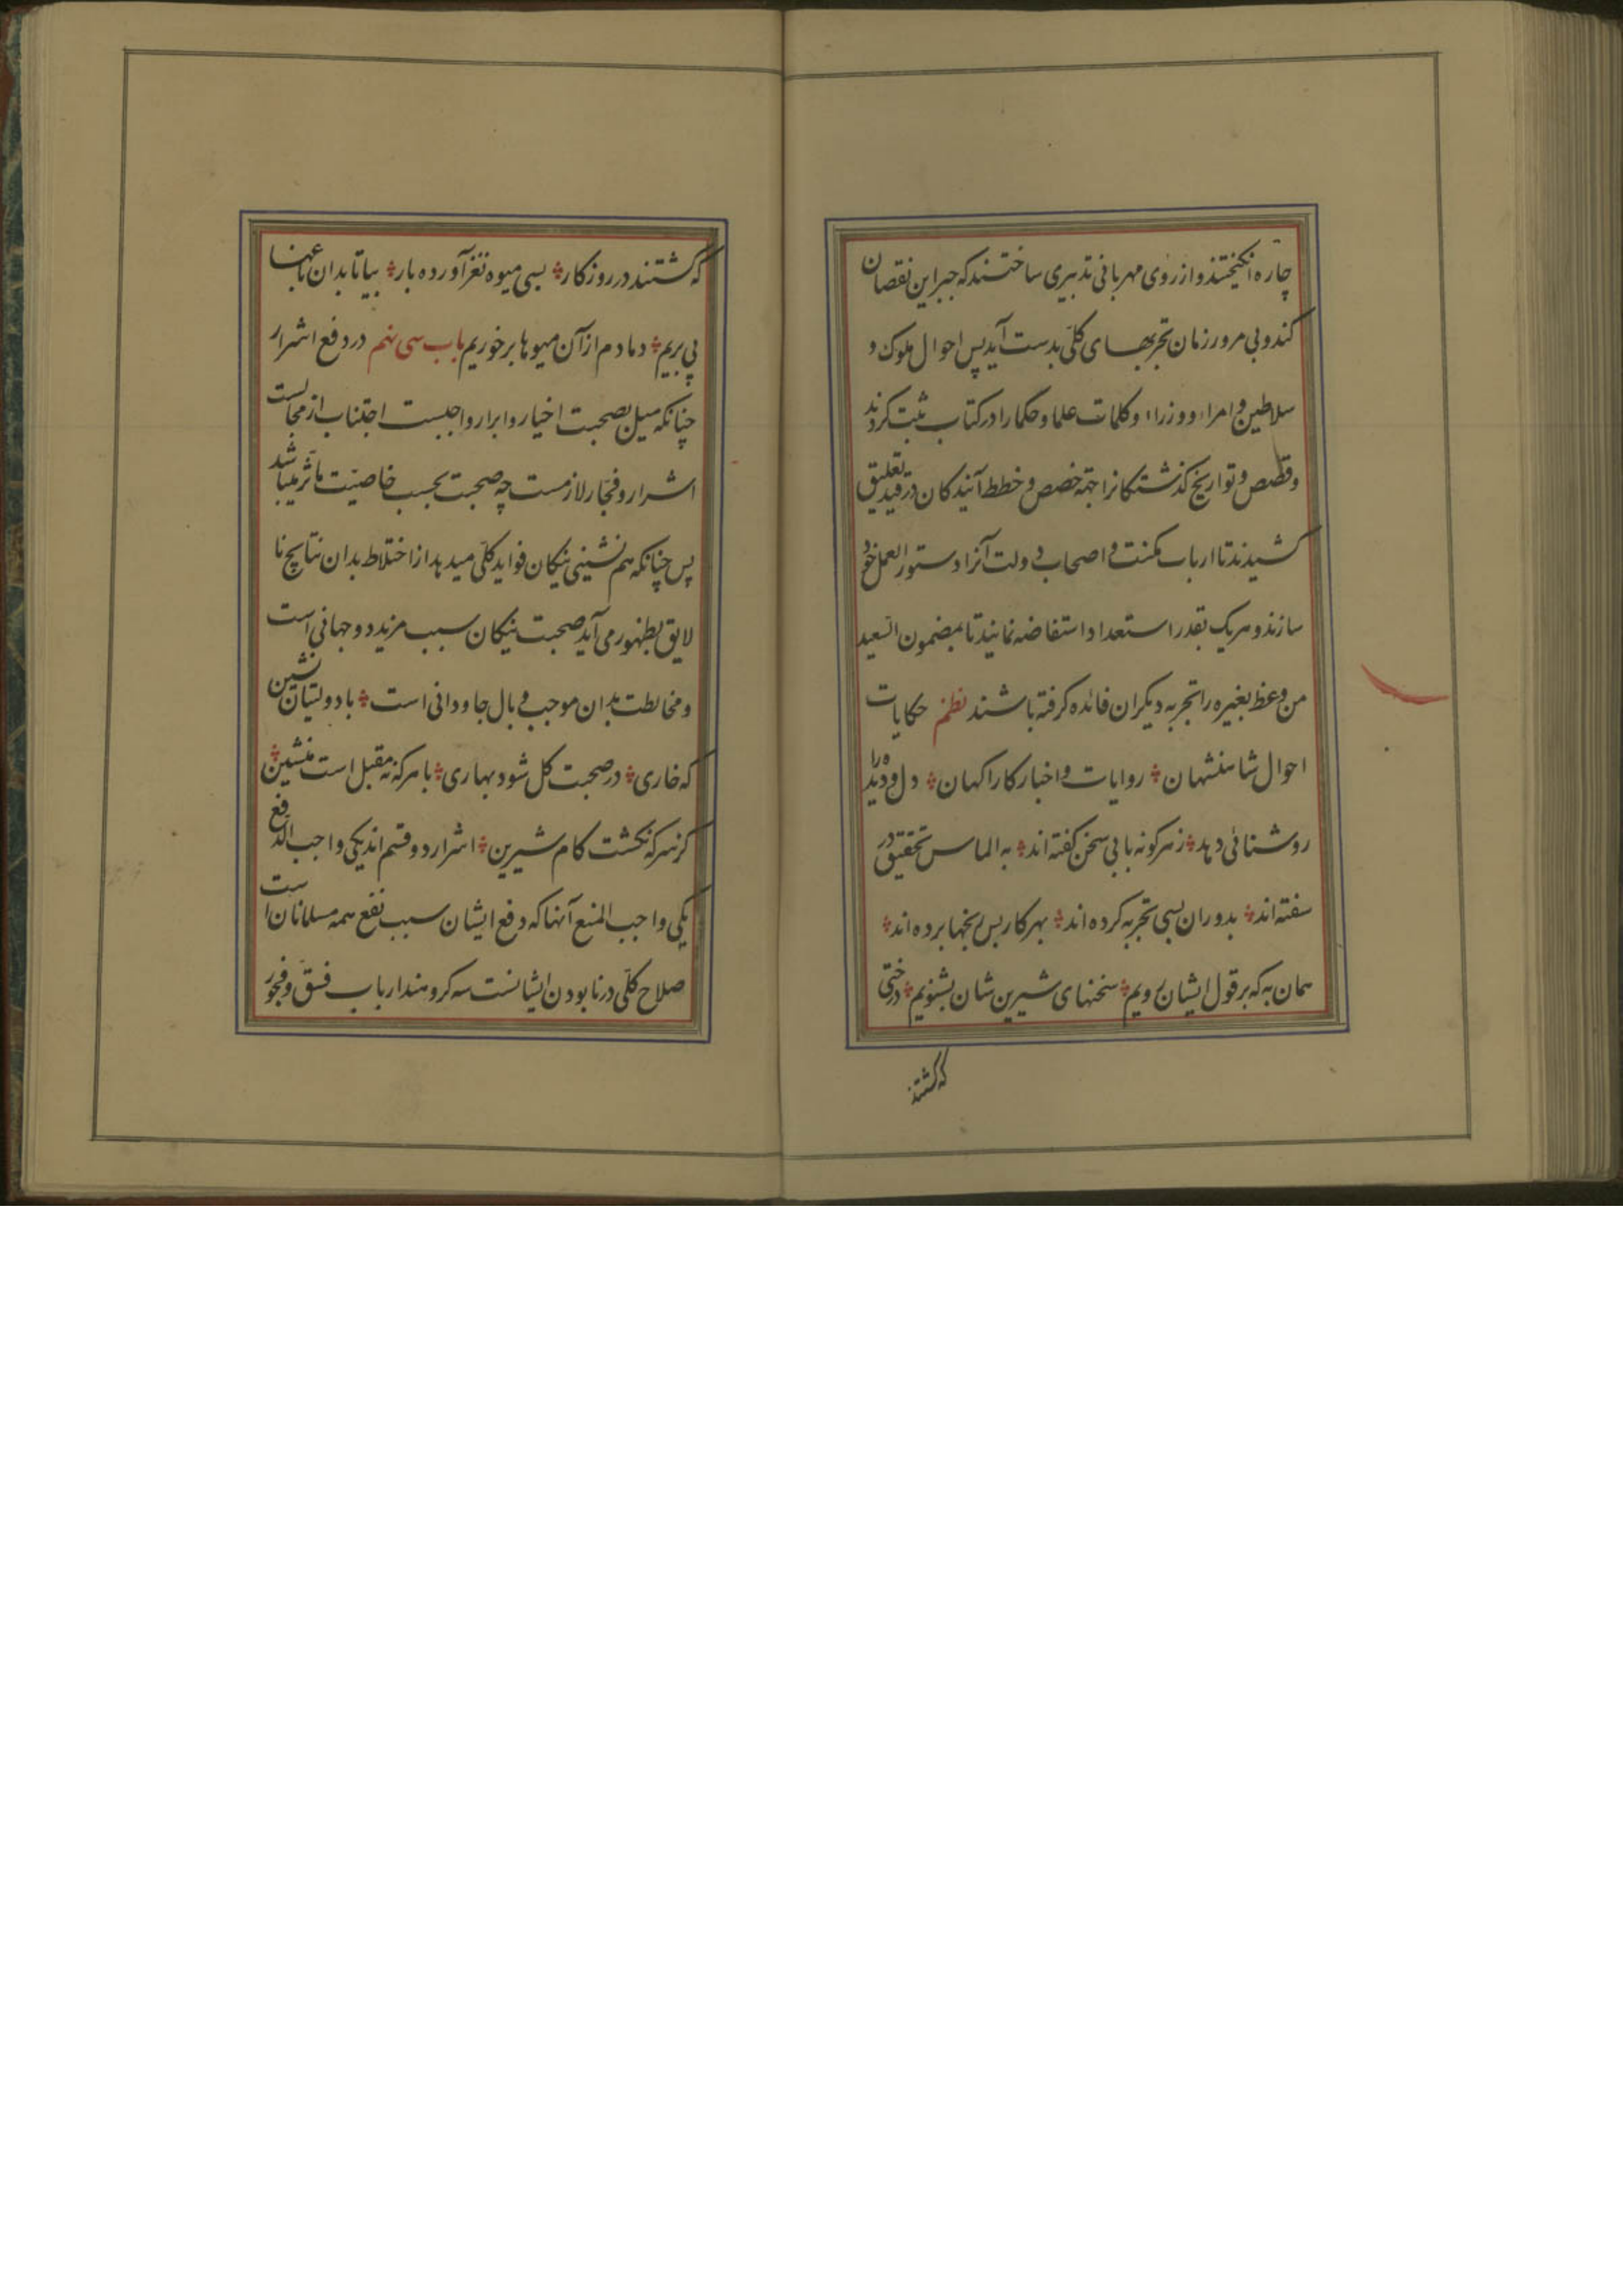 چاره انکیختند و از روی مهربانی تدبیری ساختند که جبر این نقصان
کند و بی مرور زمان تجربهای کلّی بدست آید پس احوال ملوک و
سلاطین و امراء و وزراء و کلمات علما و حکما را در کتاب ثبت کردند
و قصص و تواریخ کذشتکانرا جهة خصص و خطط آیندکان در قید تعلیق
کشیدند تا ارباب مکنت و اصحاب دولت آنرا دستور العمل خود
سازند و هر یک بقدر استعداد استفاضه نمایند تا بمضمون السعید
من وعظ بغیره را تجربه دیکران فائده کرفته باشند نظم حکایات
احوال شاهنشهان روایات و اخبار کاراکهان دل و دیده را
روشنائی دهد ز هر کونه بابی سخن کفته اند به الماس تحقیق در
سفته اند بدوران بسی تجربه کرده اند بهر کار بس رنجها برده اند
همان به که بر قول ایشان رویم سخنهای شیرین شان بشنویم درختی
که کشتند
که کشتند در روزکار بسی میوه نغز آورده بار بیا تا بدان باغها
پی بریم دمادم از آن میوها بر خوریم باب سی نهم در دفع اشرار
چنانکه میل بصحبت اخیار و ابرار واجبست اجتناب از مجالست
اشرار و فجّار لازمست چه صحبت بحسب خاصیّت مأثر میباشد
پس چنانکه هم نشینی نیکان فواید کلّی میدهد از اختلاط بدان نتایج نا
لایق بظهور می آید صحبت نیکان سبب مزید دوجهانی است
و مخالطت بدان موجب وبال جاودانی است با دولتیان نشین
که خاری در صحبت کل شود بهاری با هر که نه مقبل است منشین
کز سرکه نکشت کام شیرین اشرار دو قسم اند یکی واجب الدّفع
یکی واجب المنع آنها که دفع ایشان سبب نفع همه مسلمانان است
صلاح کلّی در نابودن ایشانست سه کروهند ارباب فسق و فجور